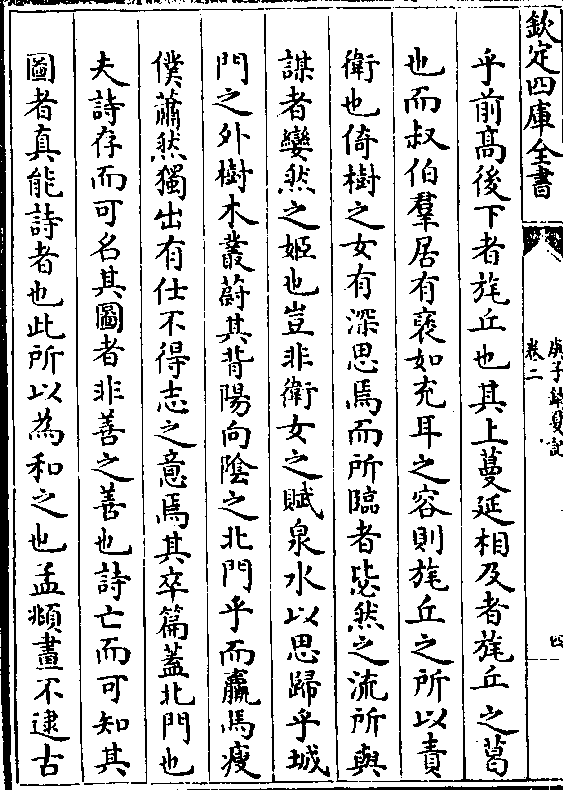 欽定四庫全書
庚子銷夏記
卷二
四
乎前高後下者旄丘也其上蔓延相及者旄丘之葛
也而叔伯羣居有褎如充耳之容則旄丘之所以責
衛也倚樹之女有深思焉而所臨者毖然之流所與
謀者孌然之姬也豈非衛女之賦泉水以思歸乎城
門之外樹木叢蔚其背陽向陰之北門乎而羸馬瘦
僕蕭然獨出有仕不得志之意焉其卒篇蓋北門也
夫詩存而可名其圖者非善之善也詩亡而可知其
圖者真能詩者也此所以為和之也孟頫畫不逮古